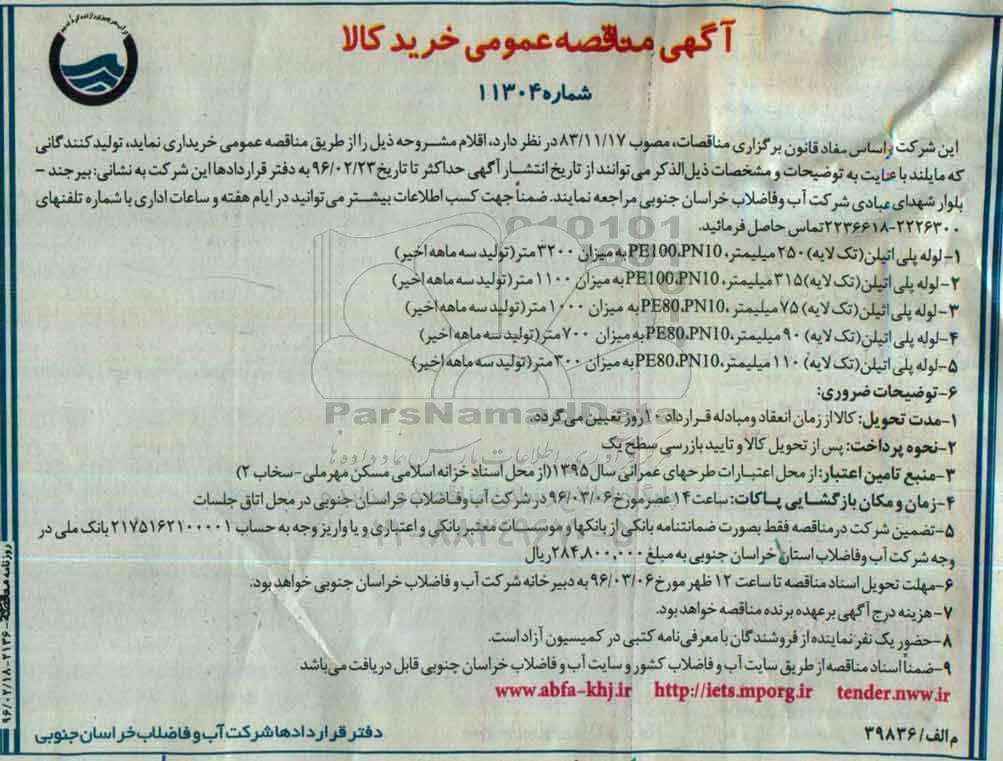 آگهی مناقصه عمومی خرید کالا
شماره ۱۱۳۰۴
این شرکت براساس مفاد قانون برگزاری مناقصات، مصوب ۸۳/۱۱/۱۷ در نظر دارد، اقلام مشروحه ذیل را از طریق مناقصه عمومی خریداری نماید، تولیدکنندگانی
که مایلند با عنایت به توضیحات و مشخصات ذیل‌الذکر می‌توانند از تاریخ انتشار آگهی حداکثر تا تاریخ ۹۶/۰۲/۲۳ به دفتر قراردادها این شرکت به نشانی: بیرجند -
بلوار شهدای عبادی شرکت آب وفاضلاب خراسان جنوبی مراجعه نمایند. ضمناً جهت کسب اطلاعات بیشتر می‌توانید در ایام هفته و ساعات اداری با شماره تلفنهای
۲۲۳۶۶۱۸-۲۲۲۶۳۰۰ تماس حاصل فرمائید.
۱- لوله پلی اتیلن (تک لایه) ۲۵۰ میلیمتر، PE100،PN10 به میزان ۳۲۰۰ متر (تولید سه ماهه اخیر)
۲- لوله پلی اتیلن (تک لایه) ۳۱۵ میلیمتر، PE100،PN10 به میزان ۱۱۰۰ متر (تولید سه ماهه اخیر)
۳- لوله پلی اتیلن (تک لایه) ۷۵ میلیمتر، PE80،PN10 به میزان ۱۰۰۰ متر (تولید سه ماهه اخیر)
۴- لوله پلی اتیلن (تک لایه) ۹۰ میلیمتر، PE80،PN10 به میزان ۷۰۰ متر (تولید سه ماهه اخیر)
۵- لوله پلی اتیلن (تک لایه) ۱۱۰ میلیمتر، PE80،PN10 به میزان ۳۰۰ متر (تولید سه ماهه اخیر)
۶- توضیحات ضروری:
ParsNamadData
۱- مدت تحویل: کالا از زمان انعقاد ومبادله قرارداد ۱۰ روز تعیین می‌گردد.
۲- نحوه پرداخت: پس از تحویل کالا و تایید بازرسی سطح یک
۳- منبع تامین اعتبار: از محل اعتبارات طرحهای عمرانی سال ۱۳۹۵ (از محل اسناد خزانه اسلامی مسکن مهر ملی - سخاب ۲)
۴- زمان و مکان بازگشایی پاکات: ساعت ۱۴ عصر مورخ ۹۶/۰۳/۰۶ در شرکت آب وفاضلاب خراسان جنوبی در محل اتاق جلسات
۵- تضمین شرکت در مناقصه فقط بصورت ضمانتنامه بانکی از بانکها و موسسات معتبر بانکی و اعتباری و یا واریز وجه به حساب ۲۱۷۵۱۶۲۱۰۰۰۰۱ بانک ملی در
وجه شرکت آب وفاضلاب استان خراسان جنوبی به مبلغ ۲۸۴,۸۰۰,۰۰۰ ریال
۶- مهلت تحویل اسناد مناقصه تا ساعت ۱۲ ظهر مورخ ۹۶/۰۳/۰۶ به دبیرخانه شرکت آب و فاضلاب خراسان جنوبی خواهد بود.
۷- هزینه درج آگهی برعهده برنده مناقصه خواهد بود.
۸- حضور یک نفر نماینده از فروشندگان با معرفی‌نامه کتبی در کمیسیون آزاد است.
۹- ضمناً اسناد مناقصه از طریق سایت آب و فاضلاب کشور و سایت آب و فاضلاب خراسان جنوبی قابل دریافت می‌باشد
www.abfa-khj.ir http://iets.mporg.ir tender.nww.ir
م الف/ ۳۹۸۳۶
دفتر قراردادها شرکت آب و فاضلاب خراسان جنوبی
روزنامه مناقصه - ۲۱۳۶ - ۹۶/۰۲/۱۸